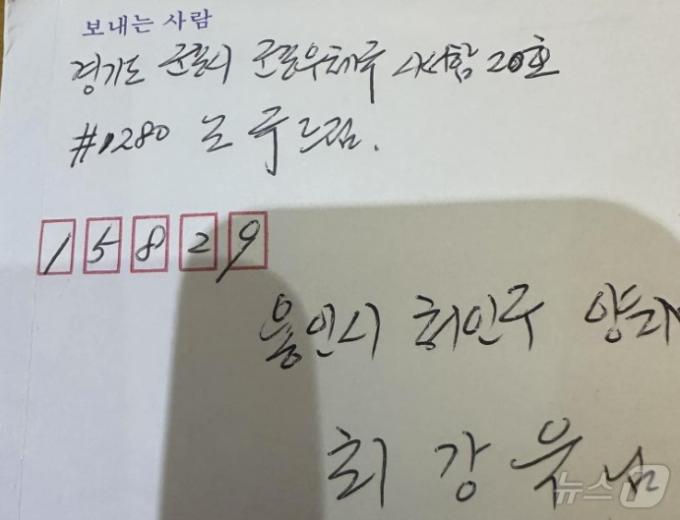 보내는 사람
경기도 군포시 군포우체국 사서함 20호
#1280 조 국 드림.
15829
용인시 처인구 양지
최 강 욱 님
뉴스1